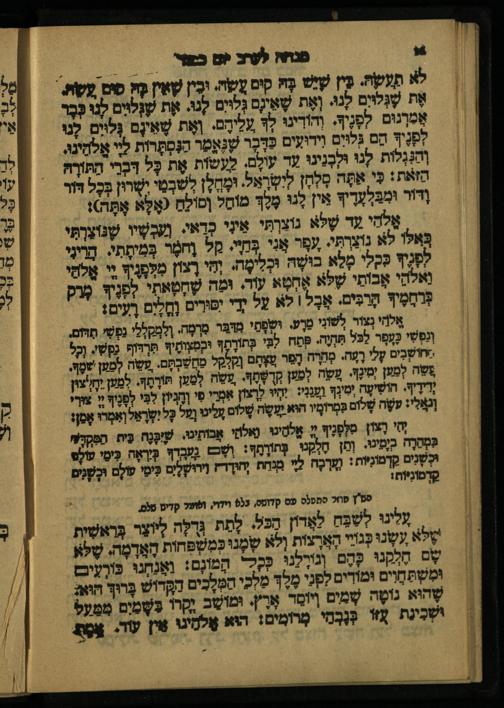 מנחה לערב יום כפור
לֹא תַעֲשֶׂה. בֵּין שֶׁיֵּשׁ בָּהּ קוּם עֲשֵׂה. וּבֵין שֶׁאֵין בָּהּ קוּם עֲשֵׂה.
אֶת שֶׁגְּלוּיִם לָנוּ. וְאֶת שֶׁאֵינָם גְּלוּיִם לָנוּ. אֶת שֶׁגְּלוּיִם לָנוּ כְּבָר
אֲמַרְנוּם לְפָנֶיךָ. וְהוֹדִינוּ לְךָ עֲלֵיהֶם. וְאֶת שֶׁאֵינָם גְּלוּיִם לָנוּ
לְפָנֶיךָ הֵם גְּלוּיִם וִידוּעִים כַּדָּבָר שֶׁנֶּאֱמַר הַנִּסְתָּרוֹת לַיְיָ אֱלֹהֵינוּ.
וְהַנִּגְלוֹת לָנוּ וּלְבָנֵינוּ עַד עוֹלָם. לַעֲשׂוֹת אֶת כָּל דִּבְרֵי הַתּוֹרָה
הַזֹּאת: כִּי אַתָּה סָלְחָן לְיִשְׂרָאֵל. וּמָחֳלָן לְשִׁבְטֵי יְשֻׁרוּן בְּכָל דּוֹר
וָדוֹר וּמִבַּלְעָדֶיךָ אֵין לָנוּ מֶלֶךְ מוֹחֵל וְסוֹלֵחַ (אֶלָּא אָתָּה):
אֱלֹהַי עַד שֶׁלֹּא נוֹצַרְתִּי אֵינִי כְדַאי. וְעַכְשָׁיו שֶׁנּוֹצַרְתִּי
כְּאִלּוּ לֹא נוֹצַרְתִּי. עָפָר אֲנִי בְּחַיָּי. קַל וָחֹמֶר בְּמִיתָתִי. הֲרֵינִי
לְפָנֶיךָ כִּכְלִי מָלֵא בוּשָׁה וּכְלִימָה. יְהִי רָצוֹן מִלְּפָנֶיךָ יְיָ אֱלֹהַי
וֵאלֹהֵי אֲבוֹתַי שֶׁלֹּא אֶחֱטָא עוֹד. וּמַה שֶּׁחָטָאתִי לְפָנֶיךָ מָרֵק
בְּרַחֲמֶיךָ הָרַבִּים. אֲבָל לֹא עַל יְדֵי יִסּוּרִים וָחֳלָיִם רָעִים:
אֱלֹהַי נְצוֹר לְשׁוֹנִי מֵרָע. וּשְׂפָתַי מִדַּבֵּר מִרְמָה. וְלִמְקַלְלַי נַפְשִׁי תִדּוֹם.
וְנַפְשִׁי כֶּעָפָר לַכֹּל תִּהְיֶה. פְּתַח לִבִּי בְּתוֹרָתֶךָ וּבְמִצְוֹתֶיךָ תִּרְדּוֹף נַפְשִׁי. וְכֹל
הַחוֹשְׁבִים עָלַי רָעָה. מְהֵרָה הָפֵר עֲצָתָם וְקַלְקֵל מַחֲשַׁבְתָּם. עֲשֵׂה לְמַעַן שְׁמֶךָ.
עֲשֵׂה לְמַעַן יְמִינֶךָ. עֲשֵׂה לְמַעַן קְדֻשָּׁתֶךָ. עֲשֵׂה לְמַעַן תּוֹרָתֶךָ. לְמַעַן יֵחָלְצוּן
יְדִידֶיךָ. הוֹשִׁיעָה יְמִינְךָ וַעֲנֵנִי: יִהְיוּ לְרָצוֹן אִמְרֵי פִי וְהֶגְיוֹן לִבִּי לְפָנֶיךָ יְיָ צוּרִי
וְגוֹאֲלִי: עֹשֶׂה שָׁלוֹם בִּמְרוֹמָיו הוּא יַעֲשֶׂה שָׁלוֹם עָלֵינוּ וְעַל כָּל יִשְׂרָאֵל וְאִמְרוּ אָמֵן:
יְהִי רָצוֹן מִלְּפָנֶיךָ יְיָ אֱלֹהֵינוּ וֵאלֹהֵי אֲבוֹתֵינוּ. שֶׁיִּבָּנֶה בֵּית הַמִּקְדָּשׁ
בִּמְהֵרָה בְיָמֵינוּ. וְתֵן חֶלְקֵנוּ בְּתוֹרָתֶךָ: וְשָׁם נַעֲבָדְךָ בְּיִרְאָה כִּימֵי עוֹלָם
וּכְשָׁנִים קַדְמוֹנִיּוֹת: וְעָרְבָה לַיְיָ מִנְחַת יְהוּדָה וִירוּשָׁלָיִם כִּימֵי עוֹלָם וּכְשָׁנִים
קַדְמוֹנִיּוֹת:
הש״ץ חוזר התפלה עם קדושה, בלא וידוי, ואומר קדיש שלם.
עָלֵינוּ לְשַׁבֵּחַ לַאֲדוֹן הַכֹּל. לָתֵת גְּדֻלָּה לְיוֹצֵר בְּרֵאשִׁית
שֶׁלֹּא עָשָׂנוּ כְּגוֹיֵי הָאֲרָצוֹת וְלֹא שָׂמָנוּ כְּמִשְׁפְּחוֹת הָאֲדָמָה. שֶׁלֹּא
שָׂם חֶלְקֵנוּ כָּהֶם וְגוֹרָלֵנוּ כְּכָל הֲמוֹנָם: וַאֲנַחְנוּ כּוֹרְעִים
וּמִשְׁתַּחֲוִים וּמוֹדִים לִפְנֵי מֶלֶךְ מַלְכֵי הַמְּלָכִים הַקָּדוֹשׁ בָּרוּךְ הוּא:
שֶׁהוּא נוֹטֶה שָׁמַיִם וְיוֹסֵד אָרֶץ. וּמוֹשַׁב יְקָרוֹ בַּשָּׁמַיִם מִמַּעַל
וּשְׁכִינַת עֻזּוֹ בְּגָבְהֵי מְרוֹמִים: הוּא אֱלֹהֵינוּ אֵין עוֹד. אֱמֶת